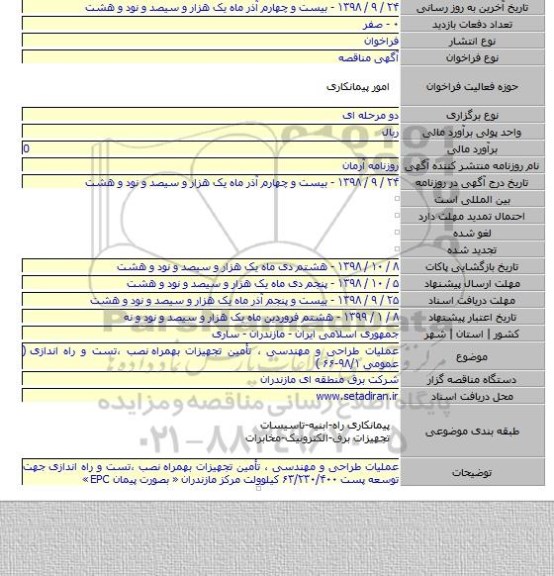 تاریخ آخرین به روز رسانی ۲۴ / ۹ / ۱۳۹۸ - بیست و چهارم آذر ماه یک هزار و سیصد و نود و هشت
تعداد دفعات بازدید ۰ - صفر
نوع انتشار فراخوان
نوع فراخوان آگهی مناقصه
حوزه فعالیت فراخوان امور پیمانکاری
نوع برگزاری دو مرحله ای
واحد پولی برآورد مالی ریال
برآورد مالی 0
نام روزنامه منتشر کننده آگهی روزنامه آرمان
تاریخ درج آگهی در روزنامه ۲۴ / ۹ / ۱۳۹۸ - بیست و چهارم آذر ماه یک هزار و سیصد و نود و هشت
بین المللی است
احتمال تمدید مهلت دارد
لغو شده
تجدید شده
تاریخ بازگشایی پاکات ۸ / ۱۰ / ۱۳۹۸ - هشتم دی ماه یک هزار و سیصد و نود و هشت
مهلت ارسال پیشنهاد ۵ / ۱۰ / ۱۳۹۸ - پنجم دی ماه یک هزار و سیصد و نود و هشت
مهلت دریافت اسناد ۲۵ / ۹ / ۱۳۹۸ - بیست و پنجم آذر ماه یک هزار و سیصد و نود و هشت
تاریخ اعتبار پیشنهاد ۸ / ۱ / ۱۳۹۹ - هشتم فروردین ماه یک هزار و سیصد و نود و نه
کشور | استان | شهر جمهوری اسلامی ایران - مازندران - ساری
موضوع عملیات طراحی و مهندسی ، تأمین تجهیزات بهمراه نصب ،تست و راه اندازی (
عمومی ۹۸/۱-۶۶ )
دستگاه مناقصه گزار شرکت برق منطقه ای مازندران
محل دریافت اسناد www.setadiran.ir
طبقه بندی موضوعی پیمانکاری راه-ابنیه-تاسیسات
تجهیزات برق-الکترونیک-مخابرات
توضیحات عملیات طراحی و مهندسی ، تأمین تجهیزات بهمراه نصب ،تست و راه اندازی جهت
توسعه پست ۶۳/۲۳۰/۴۰۰ کیلوولت مرکز مازندران « بصورت پیمان EPC»
پایگاه اطلاع رسانی مناقصه و مزایده